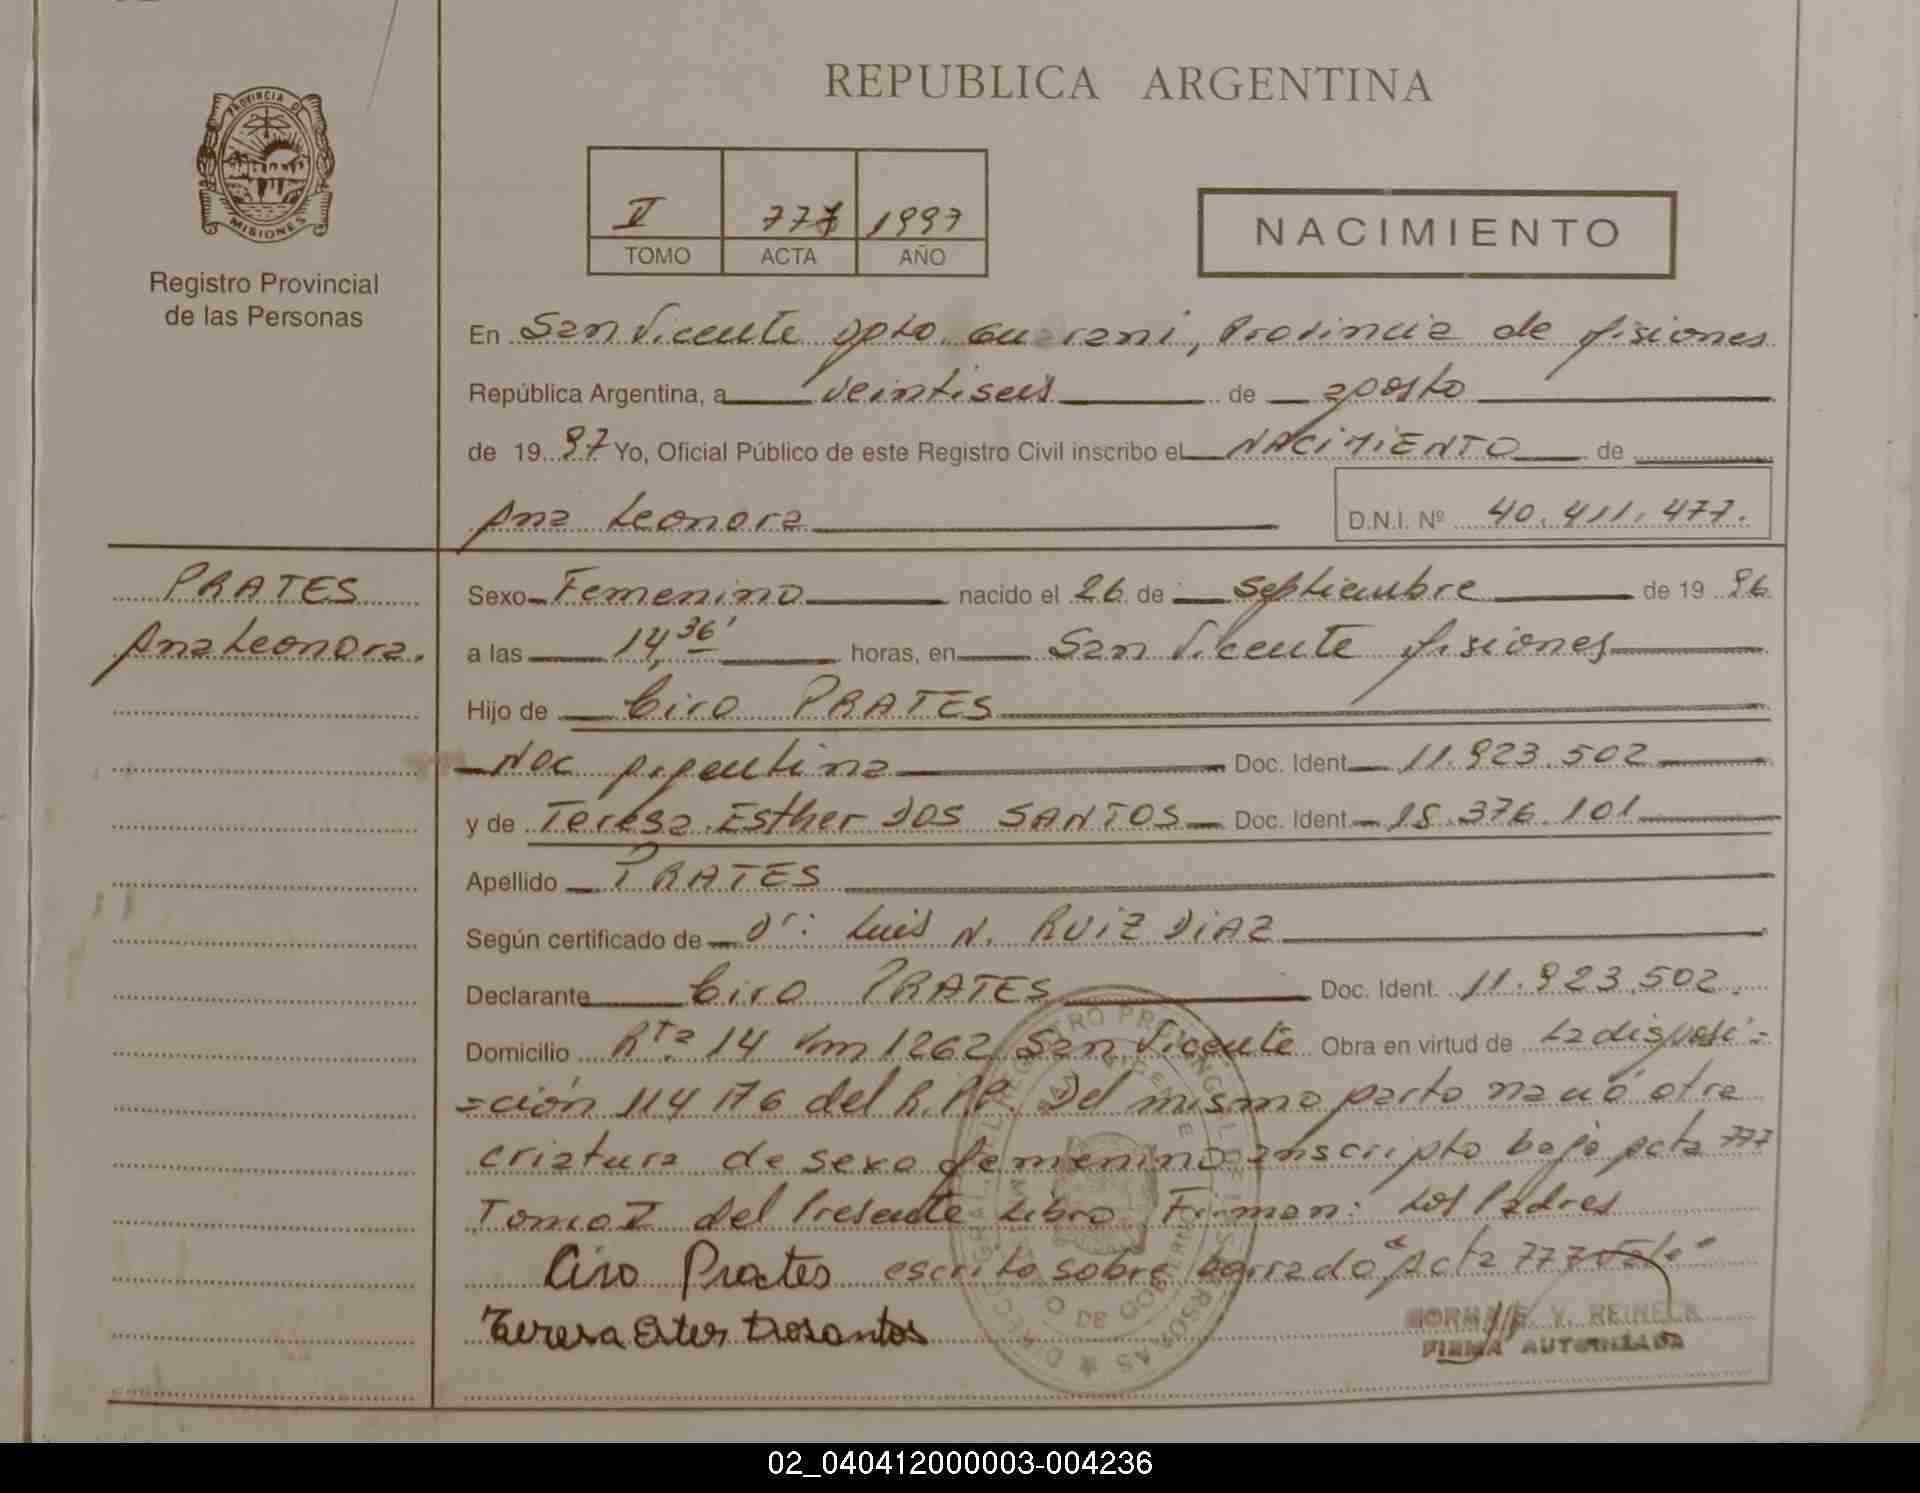 REPUBLICA ARGENTINA
PROVINCIA DE
MISIONES
Registro Provincial
de las Personas
V 777 1997
TOMO ACTA AÑO
NACIMIENTO
En San Vicente Dpto. Guarani, Provincia de Misiones
República Argentina, a veintiseis de agosto
de 1997 Yo, Oficial Público de este Registro Civil inscribo el NACIMIENTO de
Ana Leonora D.N.I. Nº 40.411.477.
PRATES
Ana Leonora.
Sexo Femenino nacido el 26 de septiembre de 1996
a las 14,36' horas, en San Vicente Misiones
Hijo de Ciro PRATES
Nac Argentina Doc. Ident. 11.923.502
y de Teresa Esther DOS SANTOS Doc. Ident. 18.376.101
Apellido PRATES
Según certificado de Dr: Luis N. RUIZ DIAZ
Declarante Ciro PRATES Doc. Ident. 11.923.502.
Domicilio Rta 14 Km 1262 San Vicente Obra en virtud de La disposi=
=ción 114/76 del R.P.P. Del mismo parto nació otra
criatura de sexo femenino inscripto bajo Acta 777
Tomo V del Presente Libro Firman: Los Padres
Ciro Prates escrito sobre borrado "Acta 777 Vale"
Teresa Ester Dosantos
V. REINECK
FIRMA AUTORIZADA
02_040412000003-004236